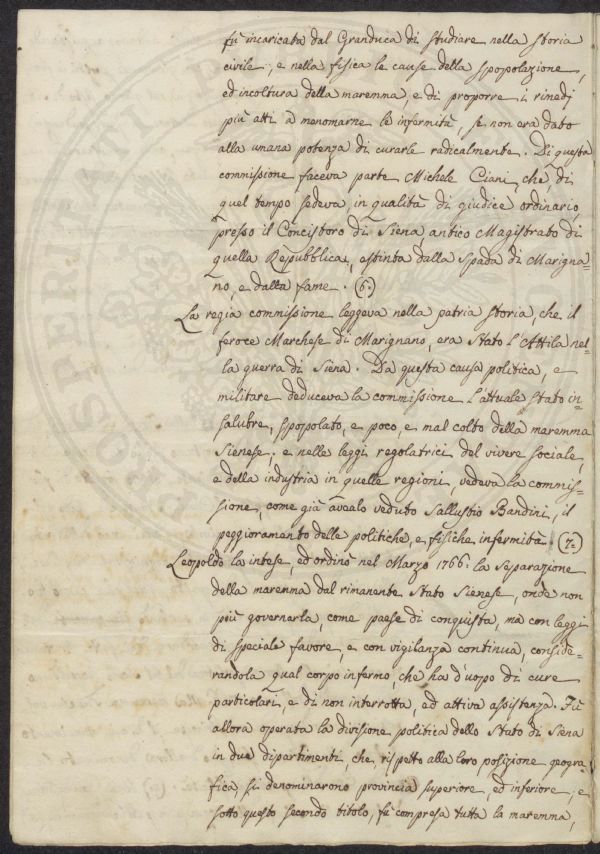 fù incaricata dal Granduca di studiare nella storia
civile, e nella fisica le cause della spopolazione,
ed incoltura della maremma, e di proporre i rimedj
più atti à menomarne le infermità, se non era dato
alla umana potenza di curarle radicalmente. Di questa
commissione faceva parte Michele Ciani, che di
quel tempo sedeva in qualità di giudice ordinario,
presso il Concistoro di Siena, antico Magistrato di
quella Repubblica, estinta dalla Spada di Marigna=
no, e dalla fame. (6.)
La regia commissione leggeva nella patria storia, che il
feroce Marchese di Marignano, era stato l'Attila nel=
la guerra di Siena. Da questa causa politica, e
militare deduceva la commissione l'attuale stato in=
salubre, spopolato, e poco, e mal colto della maremma
Sienese; e nelle leggi regolatrici del vivere sociale,
e della industria in quelle regioni, vedeva la commis=
sione, come già avealo veduto Sallustio Bandini, il
peggioramento delle politiche, e fisiche infermità. (7.)
Leopoldo la intese, ed ordinò nel Marzo 1766: la separazione
della maremma dal rimanente Stato Sienese, onde non
più governarla, come paese di conquista, ma con leggi
di speciale favore, e con vigilanza continua, conside=
randola qual corpo infermo, che ha d'uopo di cure
particolari, e di non interrotta, ed attiva assistenza. Fù
allora operata la divisione politica dello Stato di Siena
in due dipartimenti, che, rispetto alla loro posizione geogra=
fica si denominarono provincia superiore, ed inferiore, e
sotto questo secondo titolo, fù compresa tutta la maremma,
PROSPERITATI